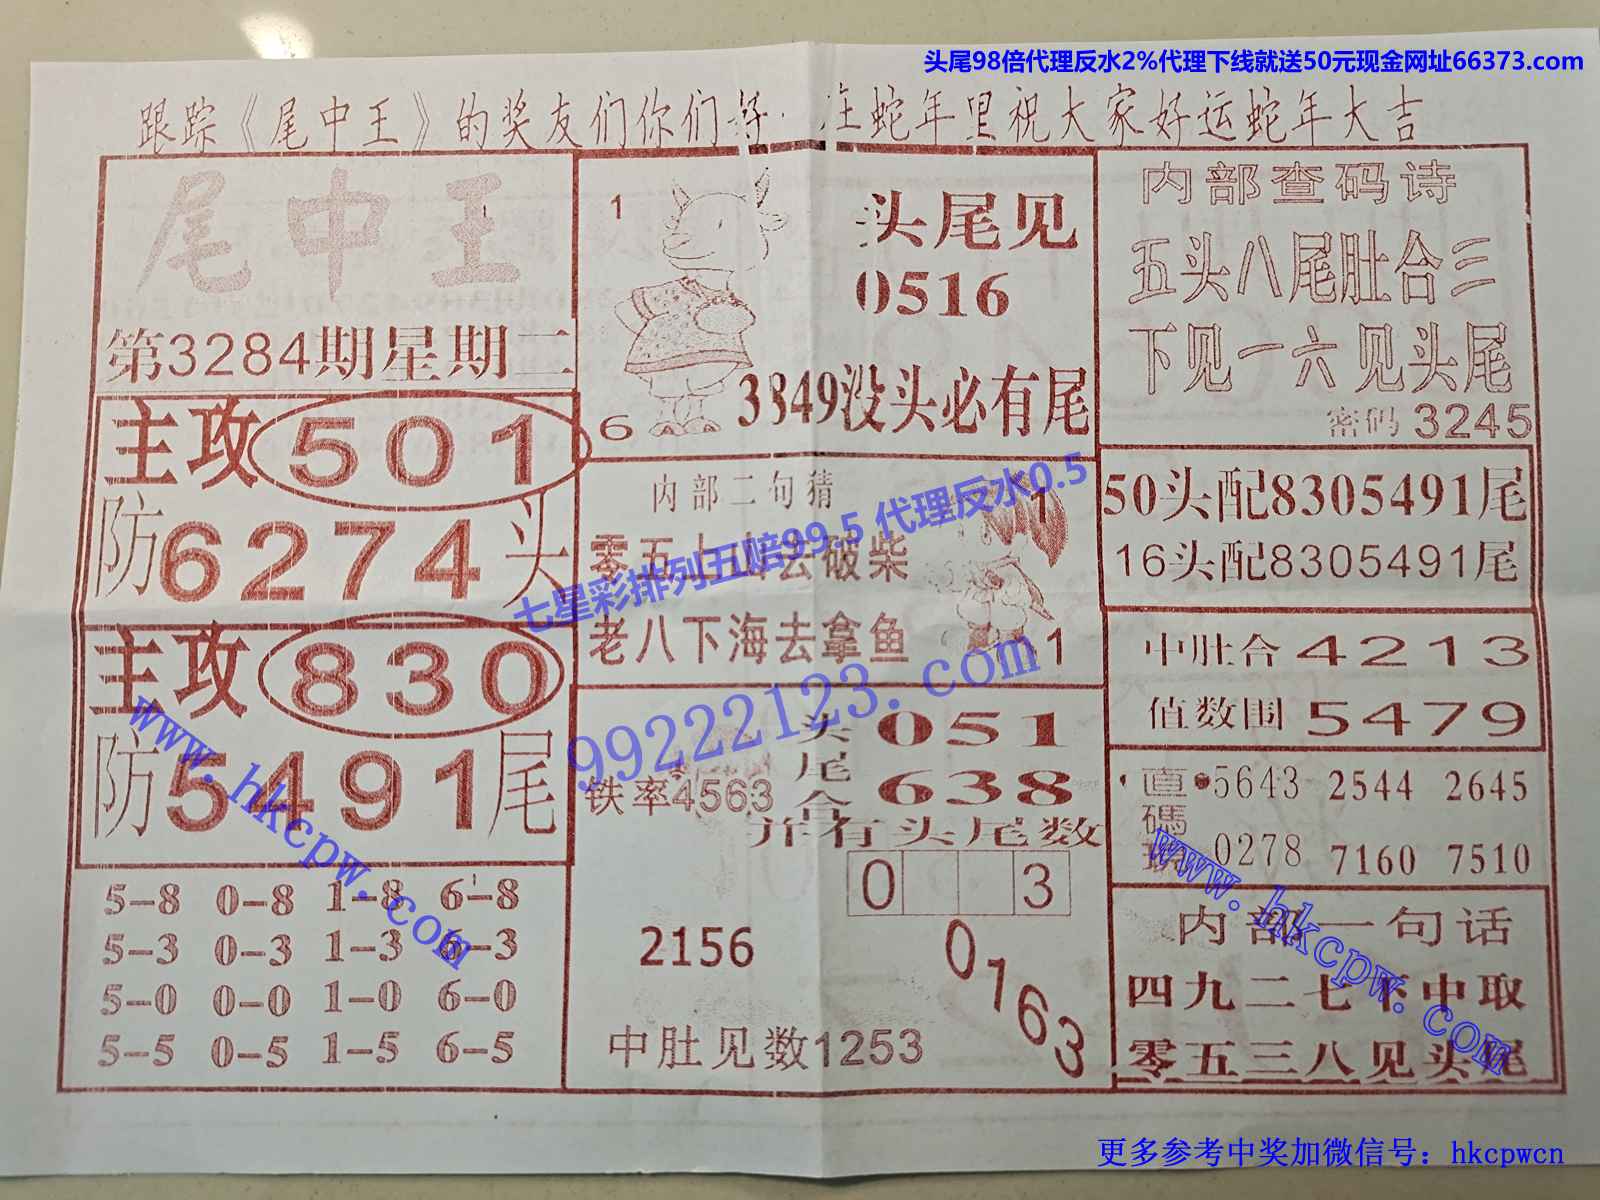 头尾98倍代理反水2%代理下线就送50元现金网址66373.com
跟踪《尾中王》的奖友们你们好·在蛇年里祝大家好运蛇年大吉
尾中王
第3284期星期二
主攻501
防6274头
主攻830
防5491尾
5-8 0-8 1-8 6-8
5-3 0-3 1-3 6-3
5-0 0-0 1-0 6-0
5-5 0-5 1-5 6-5
1
6
头尾见
0516
3849没头必有尾
内部二句猜
零五上山去破柴
老八下海去拿鱼
1
1
七星彩排列五赔99.5 代理反水0.5
99222123.com
铁率4563
头尾合
051
638
并有头尾数
0 3
2156
01763
中肚见数1253
内部查码诗
五头八尾肚合三
下见一六见头尾
密码3245
50头配8305491尾
16头配8305491尾
中肚合4213
值数围5479
直碼
5643 2544 2645
0278 7160 7510
内部一句话
四九二七下中取
零五三八见头尾
www.hkcpw.com
www.hkcpw.com
更多参考中奖加微信号：hkcpwcn